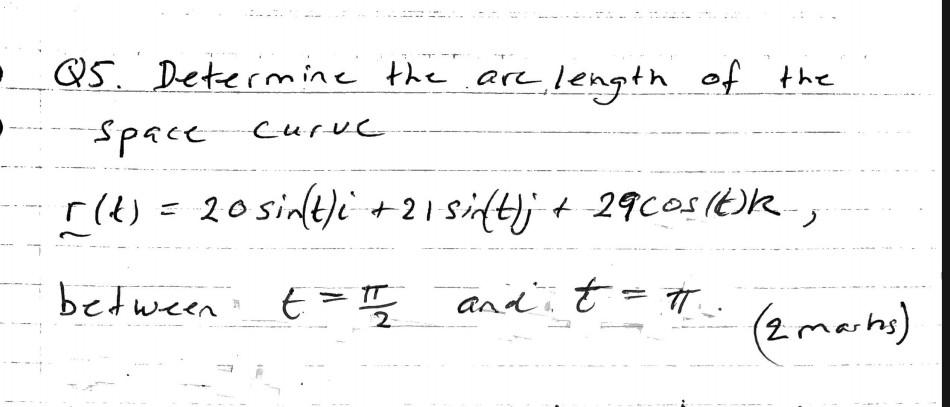 Q5. Determine the arc length of the
space curve
r(t) = 20 sin(t)i + 21 sin(t)j + 29cos(t)k ,
between t = π/2 and t = π .
(2 marks)